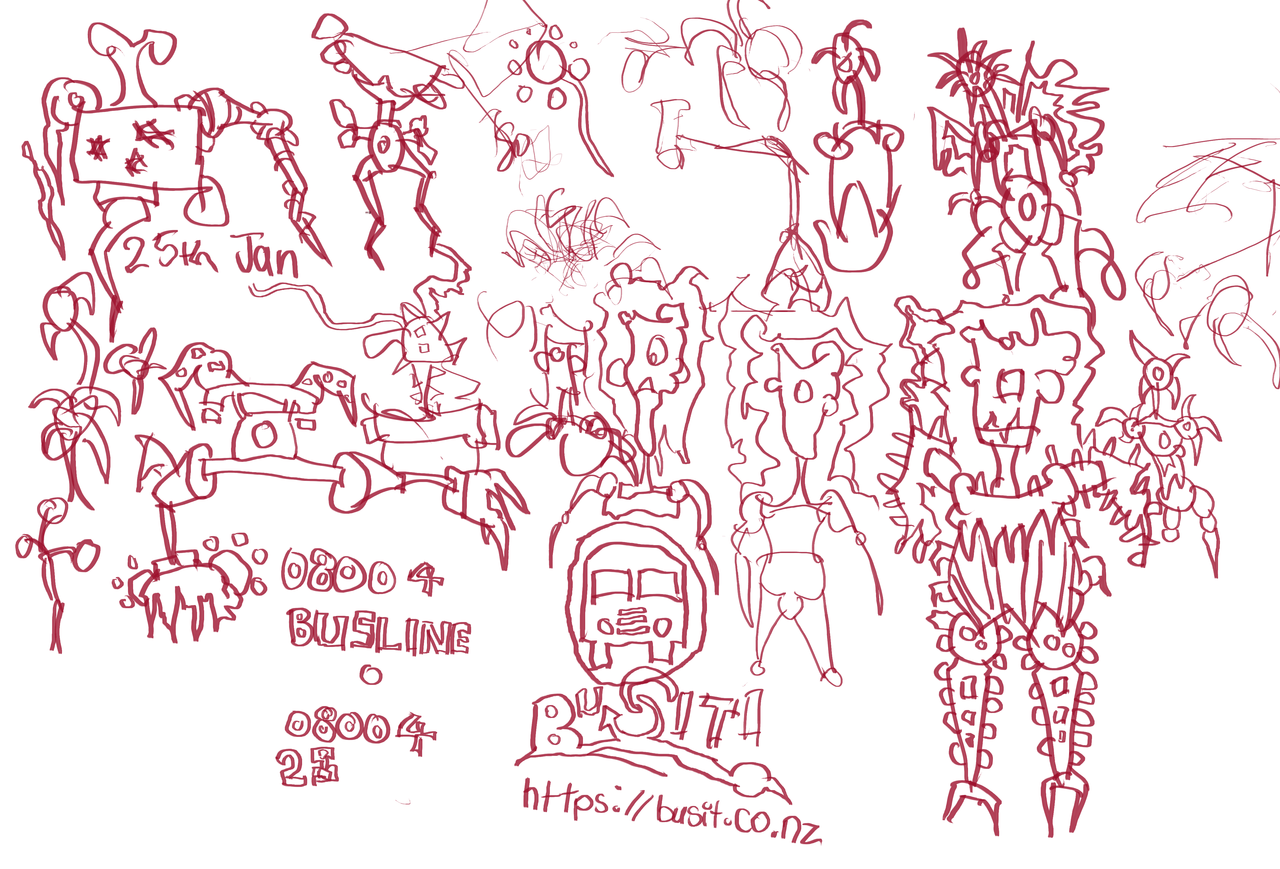 25th Jan
0800 4
BUSLINE
0800 4
BUSIT!
https://busit.co.nz